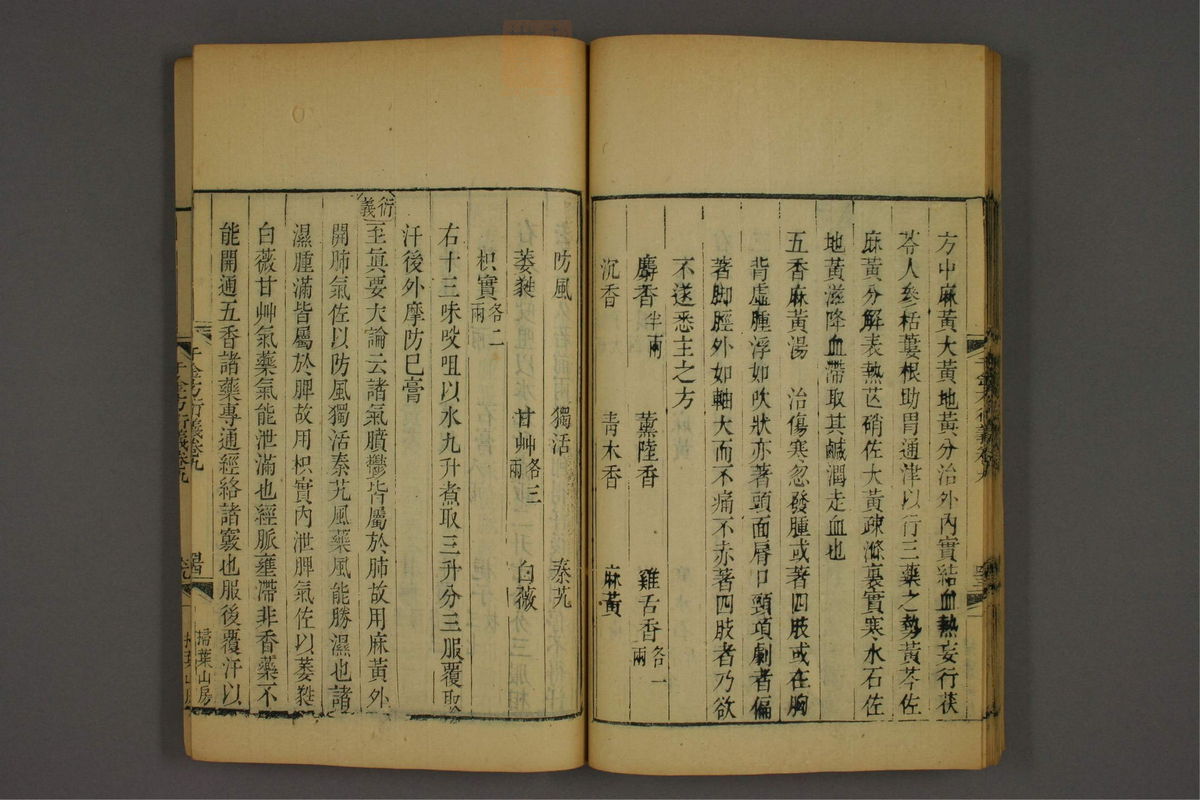 方中麻黃大黃地黃分治外內實結血熱妄行茯
苓人參栝蔞根助胃通津以行三藥之勢黃芩佐
麻黃分解表熱芒硝佐大黃疎滌裏實寒水石佐
地黃滋降血滯取其鹹潤走血也
五香麻黃湯　治傷寒忽發腫或著四肢或在胸
背虛腫浮如吹狀亦著頭面脣口頸項劇者偏
著脚脛外如軸大而不痛不赤著四肢者乃欲
不遂悉主之方
麝香半兩　薰陸香　雞舌香各一兩
沉香　青木香　麻黃
防風　獨活　秦艽
萎蕤　甘艸各三兩　白薇
枳實各二兩
右十三味㕮咀以水九升煮取三升分三服覆取
汗後外摩防巳膏
衍義 至眞要大論云諸氣膹鬱皆屬於肺故用麻黃外
開肺氣佐以防風獨活秦艽風藥風能勝濕也諸
濕腫滿皆屬於脾故用枳實內泄脾氣佐以萎蕤
白薇甘艸氣藥氣能泄滿也經脈壅滯非香藥不
能開通五香諸藥專通經絡諸竅也服後覆汗以
千金方衍義卷九
掃葉山房